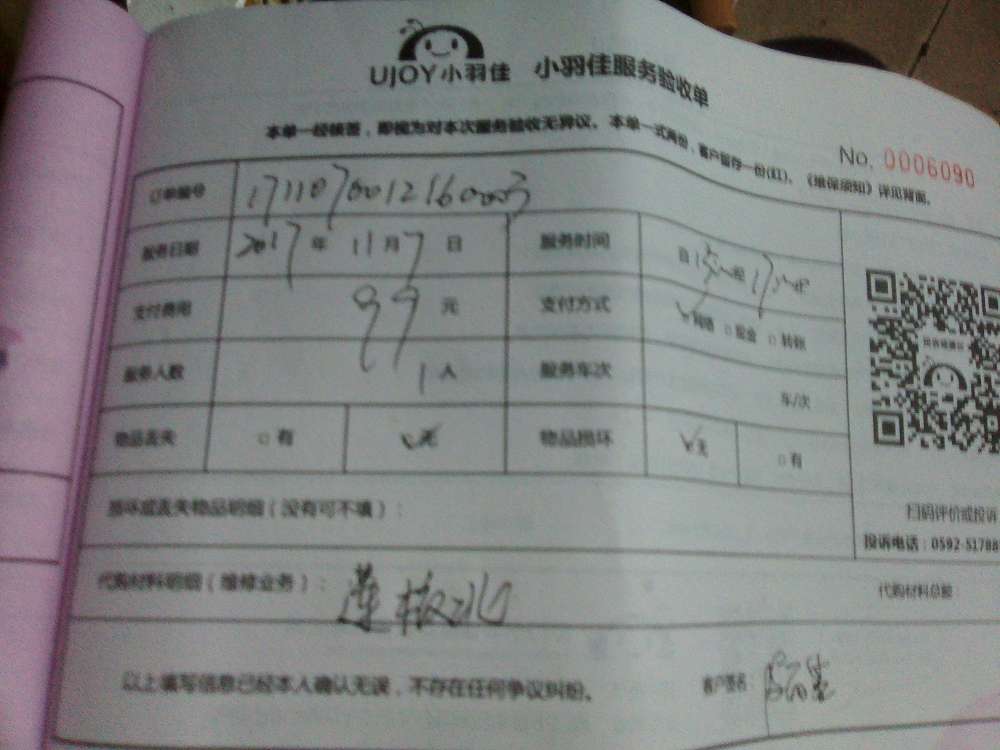 UJOY小羽佳 小羽佳服务验收单
本单一经核签，即视为对本次服务验收无异议。本单一式两份，客户留存一份(红)、《维保须知》详见背面。
No. 0006090
订单编号 17110700121600003
服务日期 2017年 11月7日 服务时间 自 至
支付费用 99元 支付方式 网络 □现金 □转账
服务人数 1人 服务车次 车/次
物品丢失 □有 无 物品损坏 无 □有
损坏或丢失物品明细（没有可不填）：
扫码评价或投诉
投诉电话：0592-51788
代购材料明细（维修业务）： 莲坂北
代购材料总额
以上填写信息已经本人确认无误，不存在任何争议纠纷。 客户签名